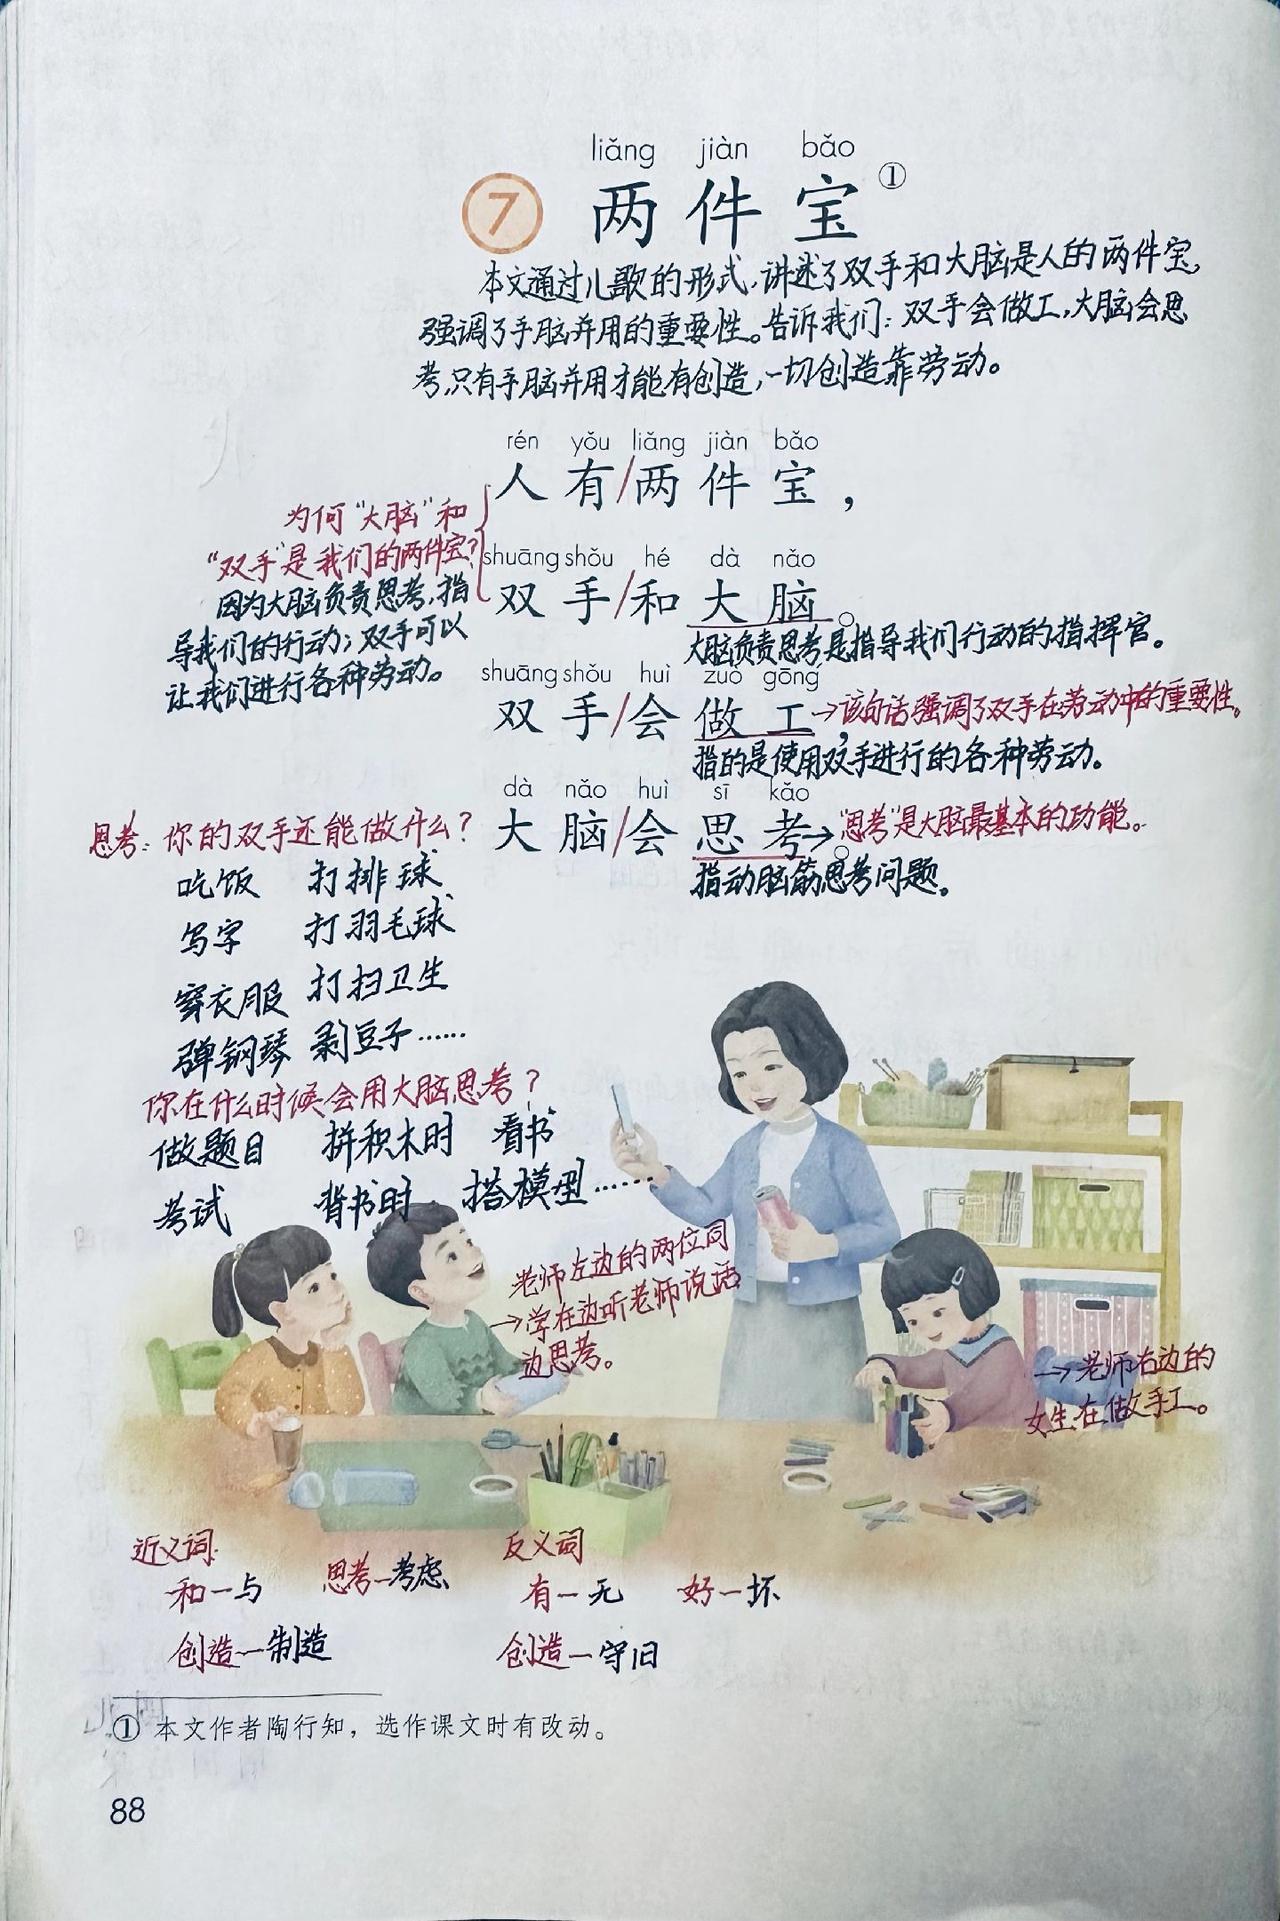 liǎng jiàn bǎo
7 两件宝①
本文通过儿歌的形式,讲述了双手和大脑是人的两件宝,
强调了手脑并用的重要性。告诉我们:双手会做工,大脑会思
考,只有手脑并用才能有创造,一切创造靠劳动。
rén yǒu liǎng jiàn bǎo
人有/两件宝,
shuāng shǒu hé dà nǎo
双手/和大脑。
为何“大脑”和
“双手”是我们的两件宝?
因为大脑负责思考,指
导我们的行动;双手可以
让我们进行各种劳动。
大脑负责思考是指导我们行动的指挥官。
shuāng shǒu huì zuò gōng
双手/会做工,
→该句话强调了双手在劳动中的重要性。
指的是使用双手进行的各种劳动。
dà nǎo huì sī kǎo
大脑/会思考。
→“思考”是大脑最基本的功能。
指动脑筋思考问题。
思考:你的双手还能做什么?
吃饭 打排球
写字 打羽毛球
穿衣服 打扫卫生
弹钢琴 剥豆子……
你在什么时候会用大脑思考?
做题目 拼积木时 看书
考试 背书时 搭模型……
老师左边的两位同
→学在边听老师说话
边思考。
→老师右边的
女生在做手工。
近义词
和—与 思考—考虑
创造—制造
反义词
有—无 好—坏
创造—守旧
① 本文作者陶行知,选作课文时有改动。
88